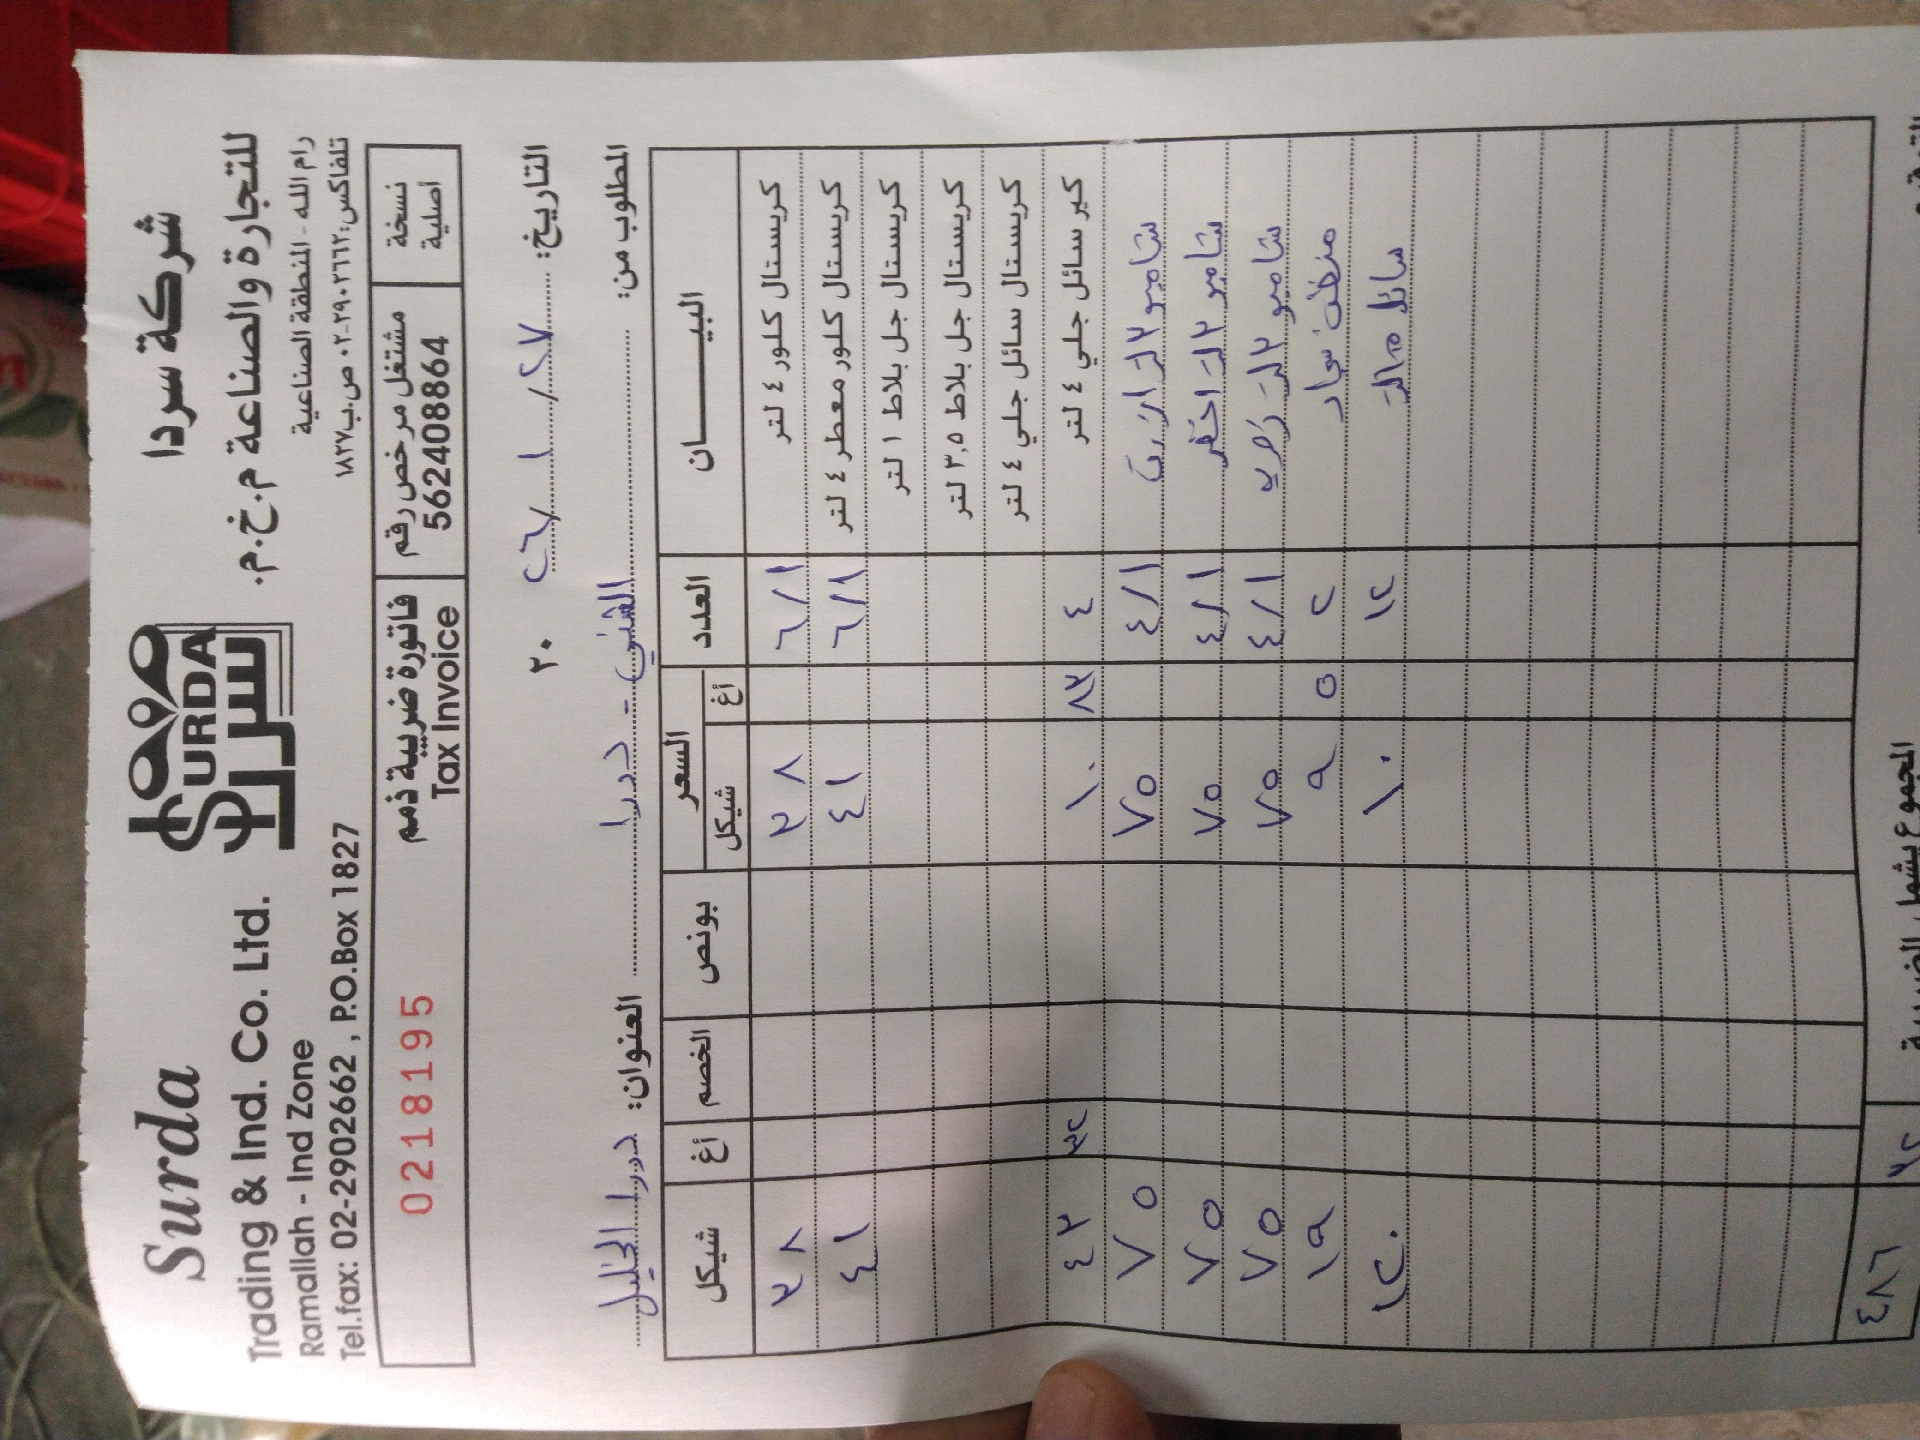 Surda
Trading & Ind. Co. Ltd.
Ramallah - Ind Zone
Tel.fax: 02-2902662 , P.O.Box 1827
SURDA
سردا
شركة سردا
للتجارة والصناعة م.خ.م.
رام الله - المنطقة الصناعية
تلفاكس: ٢٩٠٢٦٦٢-٠٢ ص.ب ١٨٢٧
نسخة أصلية
مشتغل مرخص رقم
562408864
فاتورة ضريبية ذمم
Tax Invoice
0218195
التاريخ: ٢٧ / ١ / ٢٦ ٢٠
المطلوب من: - درا العنوان: درا الخليل
البيــــــان العدد السعر بونص الخصم أغ شيكل
شيكل أغ
كريستال كلور ٤ لتر ٦/١ ٣٨ ٣٨
كريستال كلور معطر ٤ لتر ٦/١ ٤١ ٤١
كريستال جل بلاط ١ لتر
كريستال جل بلاط ٣,٥ لتر
كريستال سائل جلي ٤ لتر
كير سائل جلي ٤ لتر ٤ ١٠ ٨٣ ٤٣ ٣٢
شامبو ٣ لتر ٤/١ ٧٥ ٧٥
شامبو ٣ لتر اخضر ٤/١ ٧٥ ٧٥
شامبو ٣ لتر ٤/١ ٧٥ ٧٥
منظف سجاد ٢ ٩ ٥ ١٩
سائل ١٢ ١٠ ١٢٠
المجموع يشمل الضريبة ٣٢ ٤٨٦